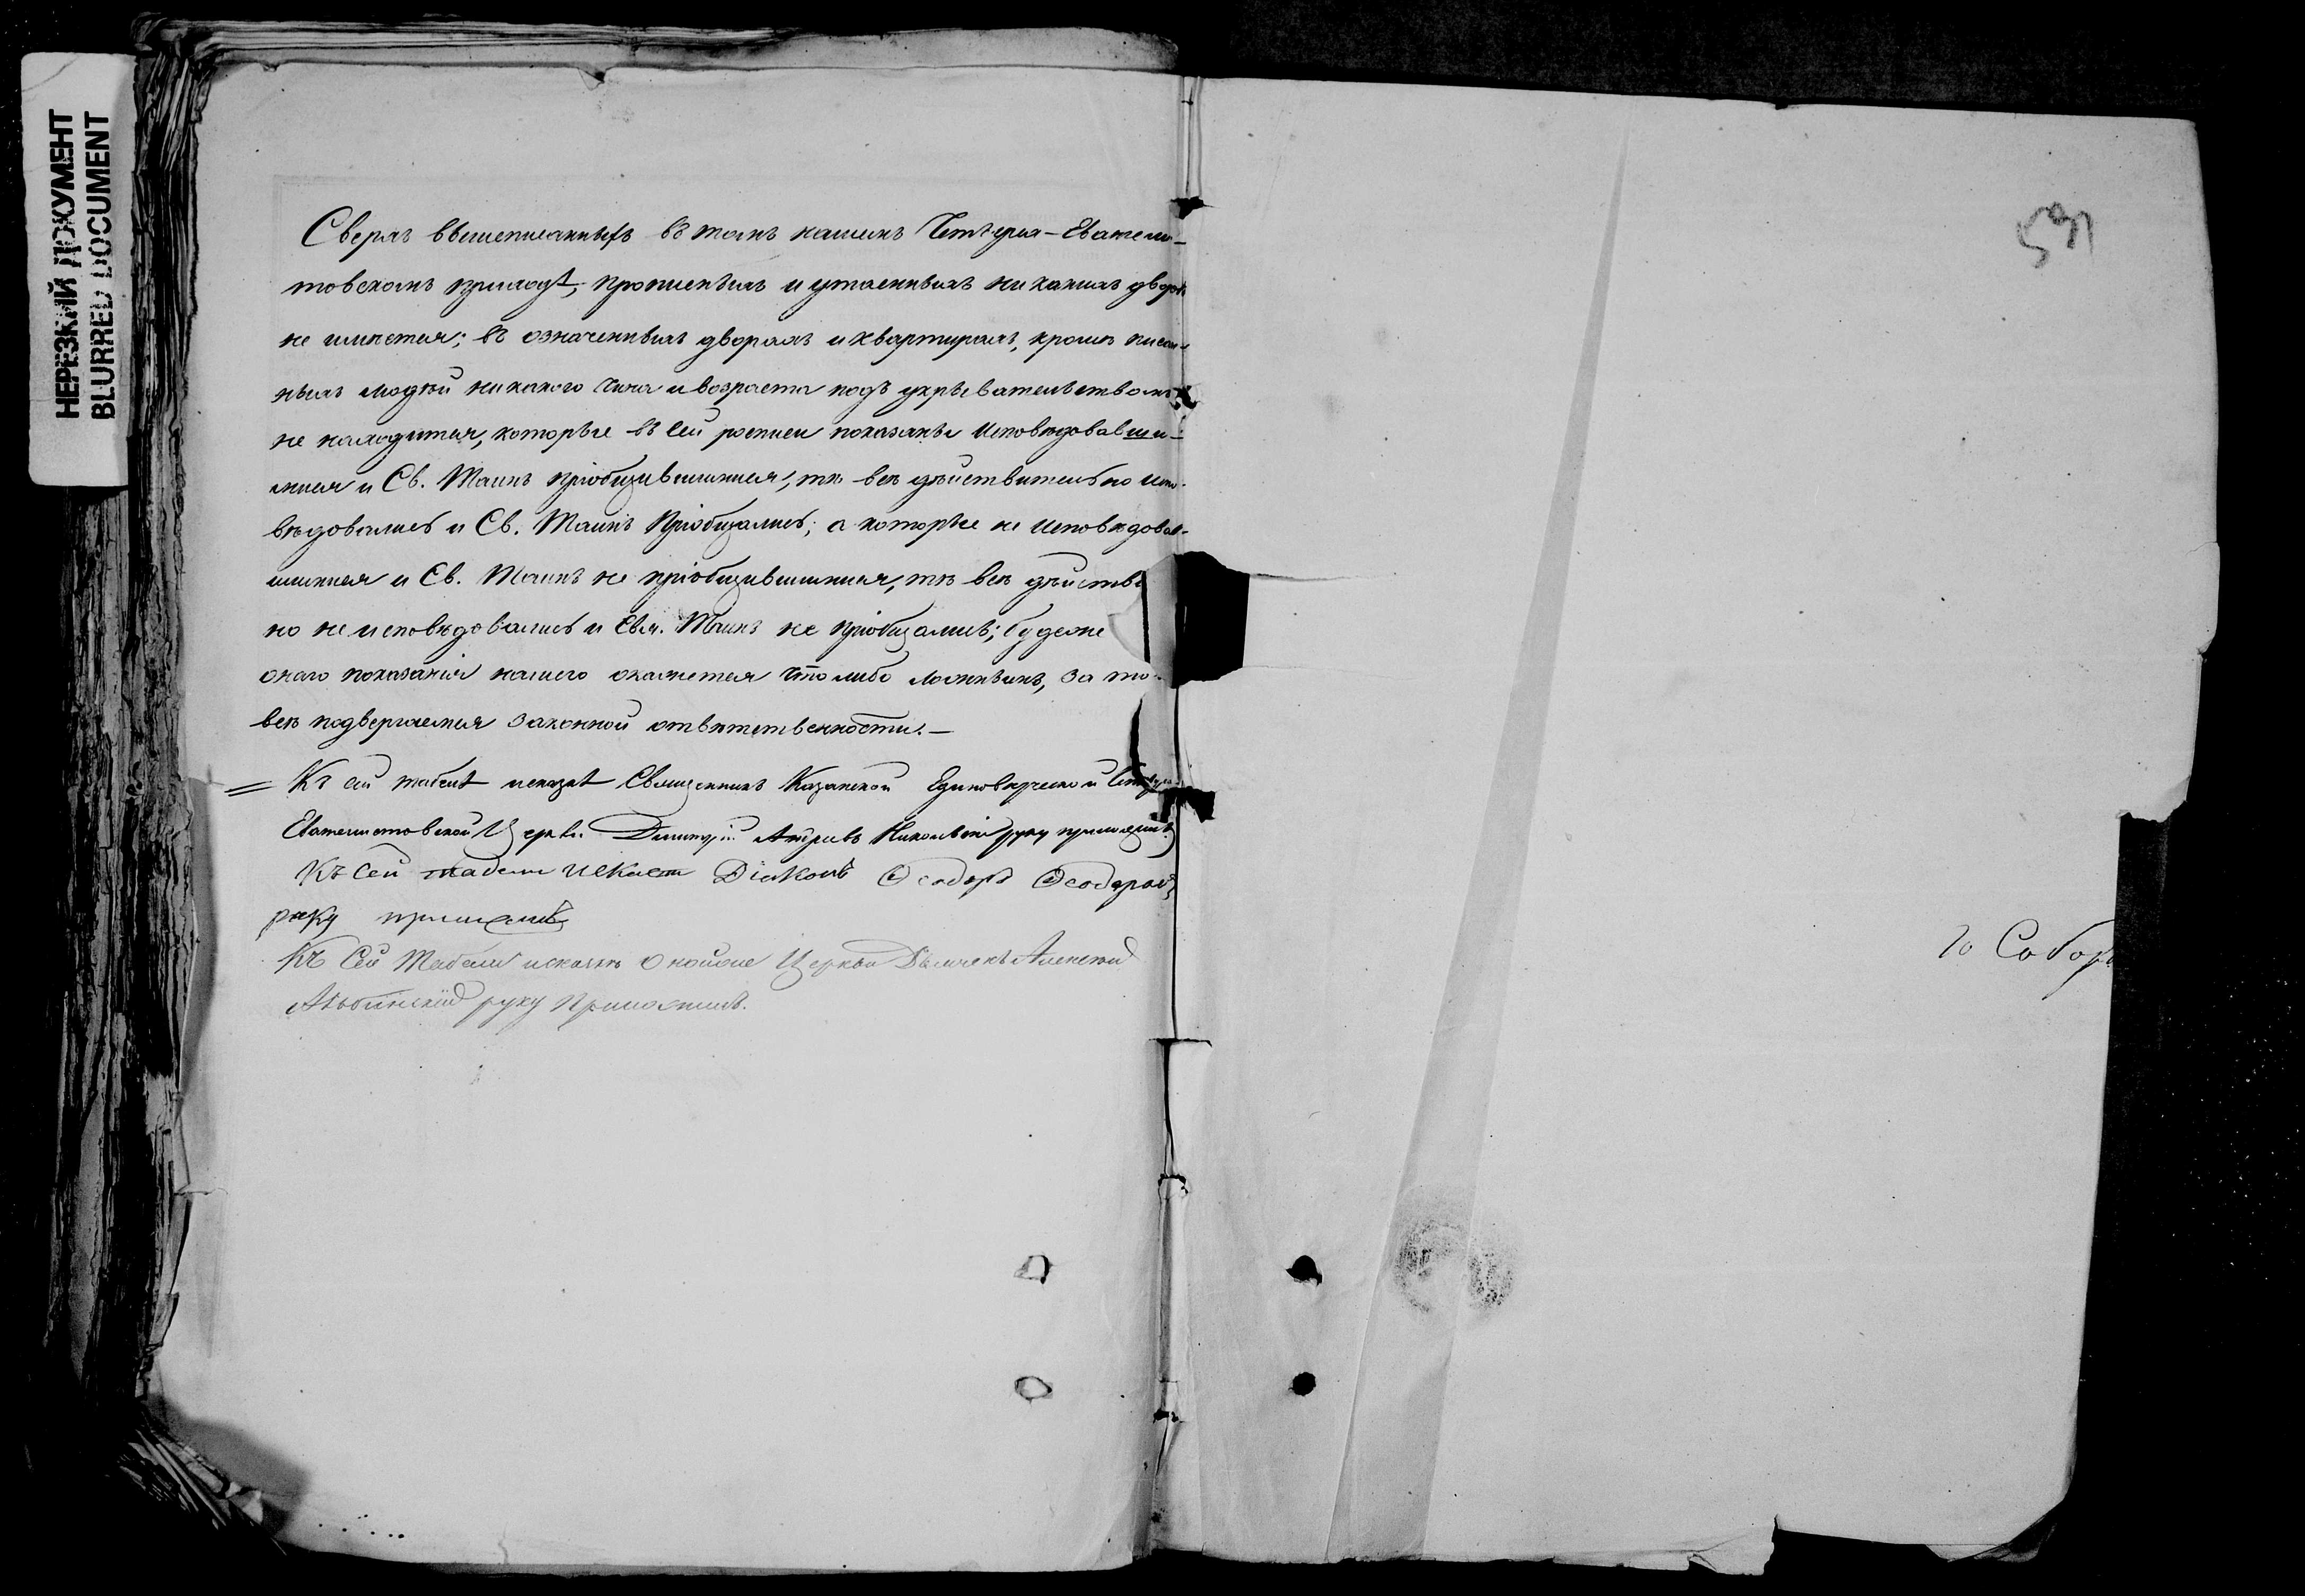 НЕРЕЗКИЙ ДОКУМЕНТ
BLURRED DOCUMENT
Сверхъ вышеписанныхъ въ томъ нашемъ Четырех-Еванели-
товскомъ приходѣ, прописныхъ и утаенныхъ ни какихъ дворовъ
не имѣется; въ означенныхъ дворахъ и квартирахъ, кромѣ писан-
ныхъ людѣй никакого чина и возраста подъ укрывательствомъ
не находится, которые въ сей росписи показаны Исповѣдовавши-
мися и Св. Таинъ пріобщившимися, тѣ всѣ дѣйствительно Испо-
вѣдовались и Св. Таинъ Пріобщались; а которые не Исповѣдовав-
шимися и Св. Таинъ не пріобщившимися, тѣ всѣ дѣйстви
но не исповѣдовались и Свя. Таинъ не пріобщались; будеже
онаго показанія нашего окажется что либо ложнымъ, за то
всѣ подвергаемся законной отвѣтственности.—
= Къ сей табели исказкѣ Священникъ Казанской Единовѣрческой
Церкви Димитрій Никольскій руку приложилъ
Къ сей табели Діаконъ Ѳеодоръ Ѳеодоровъ
руку приложилъ
Къ Сей Табели исказкѣ оной Церкви Дьячекъ Алексѣй
Альбинскій руку Приложилъ.
591
го Собор